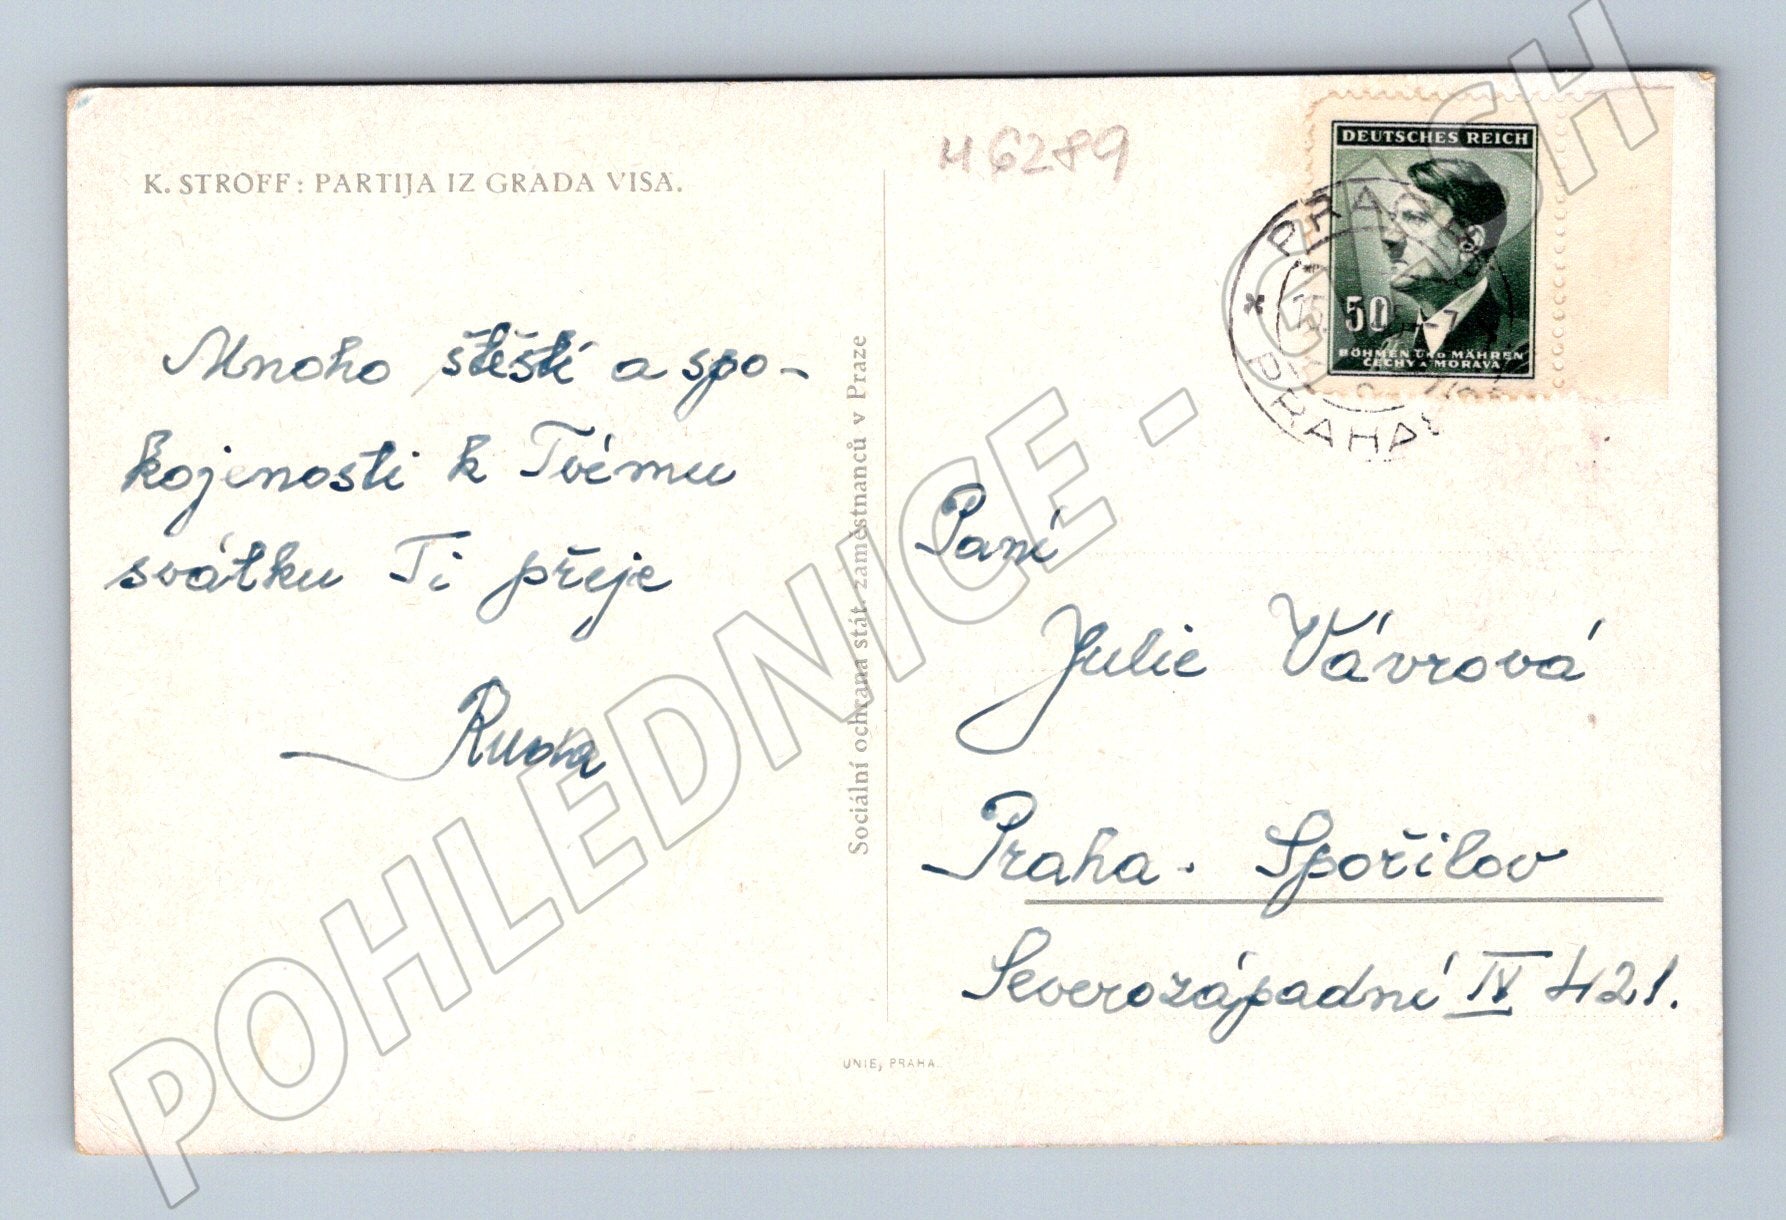 K. STROFF: PARTIJA IZ GRADA VISA.
Mnoho štěstí a spo-
kojenosti k Tvému
svátku Ti přeje
Ruda
Sociální ochrana stát. zaměstnanců v Praze
UNIE, PRAHA.
H 6289
DEUTSCHES REICH
50
BÖHMEN UND MÄHREN
ČECHY A MORAVA
PRAG
PRAHA
Paní
Julie Vávrová
Praha. Spořilov
Severozápadní IV 421.
POHLEDNICE - CALSH